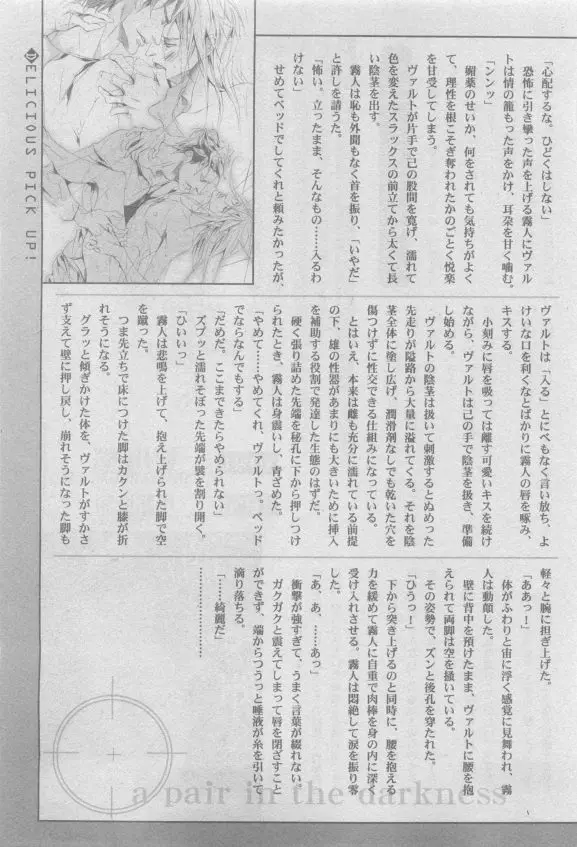 DELICIOUS PICK UP!
「心配するな。ひどくはしない」
恐怖に引き攣った声を上げる霧人にヴァル
トは情の籠もった声をかけ、耳朶を甘く噛む。
「ンンッ」
媚薬のせいか、何をされても気持ちがよく
て、理性を根こそぎ奪われたかのごとく悦楽
を甘受してしまう。
ヴァルトが片手で己の股間を寛げ、濡れて
色を変えたスラックスの前立てから太くて長
い陰茎を出す。
霧人は恥も外聞もなく首を振り、「いやだ」
と許しを請うた。
「怖い。立ったまま、そんなもの……入るわ
けない」
せめてベッドでしてくれと頼みたかったが、
ヴァルトは「入る」とにべもなく言い放ち、よ
けいな口を利くなとばかりに霧人の唇を啄み、
キスする。
小刻みに唇を吸っては離す可愛いキスを続け
ながら、ヴァルトは己の手で陰茎を扱き、準備
し始める。
ヴァルトの陰茎は扱いて刺激するとぬめった
先走りが隘路から大量に溢れてくる。それを陰
茎全体に塗し広げ、潤滑剤なしでも乾いた穴を
傷つけずに性交できる仕組みになっている。
とはいえ、本来は雌も充分に濡れている前提
の下、雄の性器があまりにも大きいために挿入
を補助する役割で発達した生態のはずだ。
硬く張り詰めた先端を秘孔に下から押しつけ
られたとき、霧人は身震いし、青ざめた。
「やめて……やめてくれ、ヴァルトっ。ベッド
でならなんでもする」
「だめだ。ここまできたらやめられない」
ズプッと濡れそぼった先端が襞を割り開く。
「ひいいっ」
霧人は悲鳴を上げて、抱え上げられた脚で空
を蹴った。
つま先立ちで床につけた脚はカクンと膝が折
れそうになる。
グラッと傾ぎかけた体を、ヴァルトがすかさ
ず支えて壁に押し戻し、崩れそうになった脚も
軽々と腕に担ぎ上げた。
「ああっ！」
体がふわりと宙に浮く感覚に見舞われ、霧
人は動顛した。
壁に背中を預けたまま、ヴァルトに腰を抱
えられて両脚は空を掻いている。
その姿勢で、ズンと後孔を穿たれた。
「ひうっ！」
下から突き上げるのと同時に、腰を抱える
力を緩めて霧人に自重で肉棒を身の内に深く
受け入れさせる。霧人は悶絶して涙を振り零
した。
「あ、あ、……あっ」
衝撃が強すぎて、うまく言葉が綴れない。
ガクガクと震えてしまって唇を閉ざすこと
ができず、端からつうっと唾液が糸を引いて
滴り落ちる。
「……綺麗だ」
a pair in the darkness